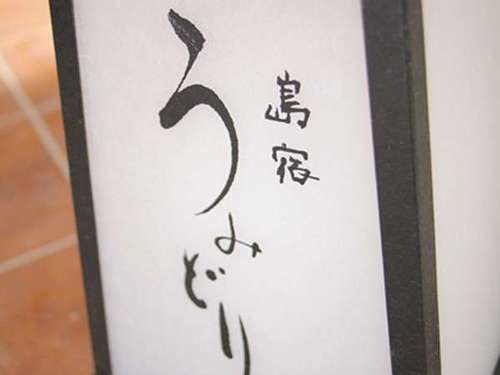 島宿
うみどり